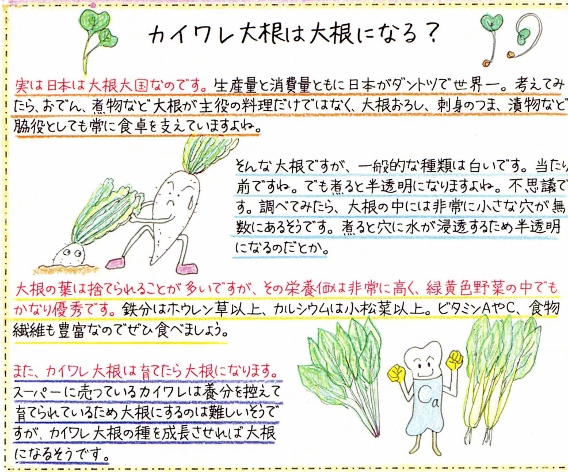 カイワレ大根は大根になる?
実は日本は大根大国なのです。生産量と消費量ともに日本がダントツで世界一。考えてみ
たら、おでん、煮物など大根が主役の料理だけではなく、大根おろし、刺身のつま、漬物など
脇役としても常に食卓を支えていますよね。
そんな大根ですが、一般的な種類は白いです。当たり
前ですね。でも煮ると半透明になりますよね。不思議で
す。調べてみたら、大根の中には非常に小さな穴が無
数にあるそうです。煮ると穴に水が浸透するため半透明
になるのだとか。
大根の葉は捨てられることが多いですが、その栄養価は非常に高く、緑黄色野菜の中でも
かなり優秀です。鉄分はホウレン草以上、カルシウムは小松菜以上。ビタミンAやC、食物
繊維も豊富なのでぜひ食べましょう。
また、カイワレ大根は育てたら大根になります。
スーパーに売っているカイワレは養分を控えて
育てられているため大根にするのは難しいそうで
すが、カイワレ大根の種を成長させれば大根
になるそうです。
Ca